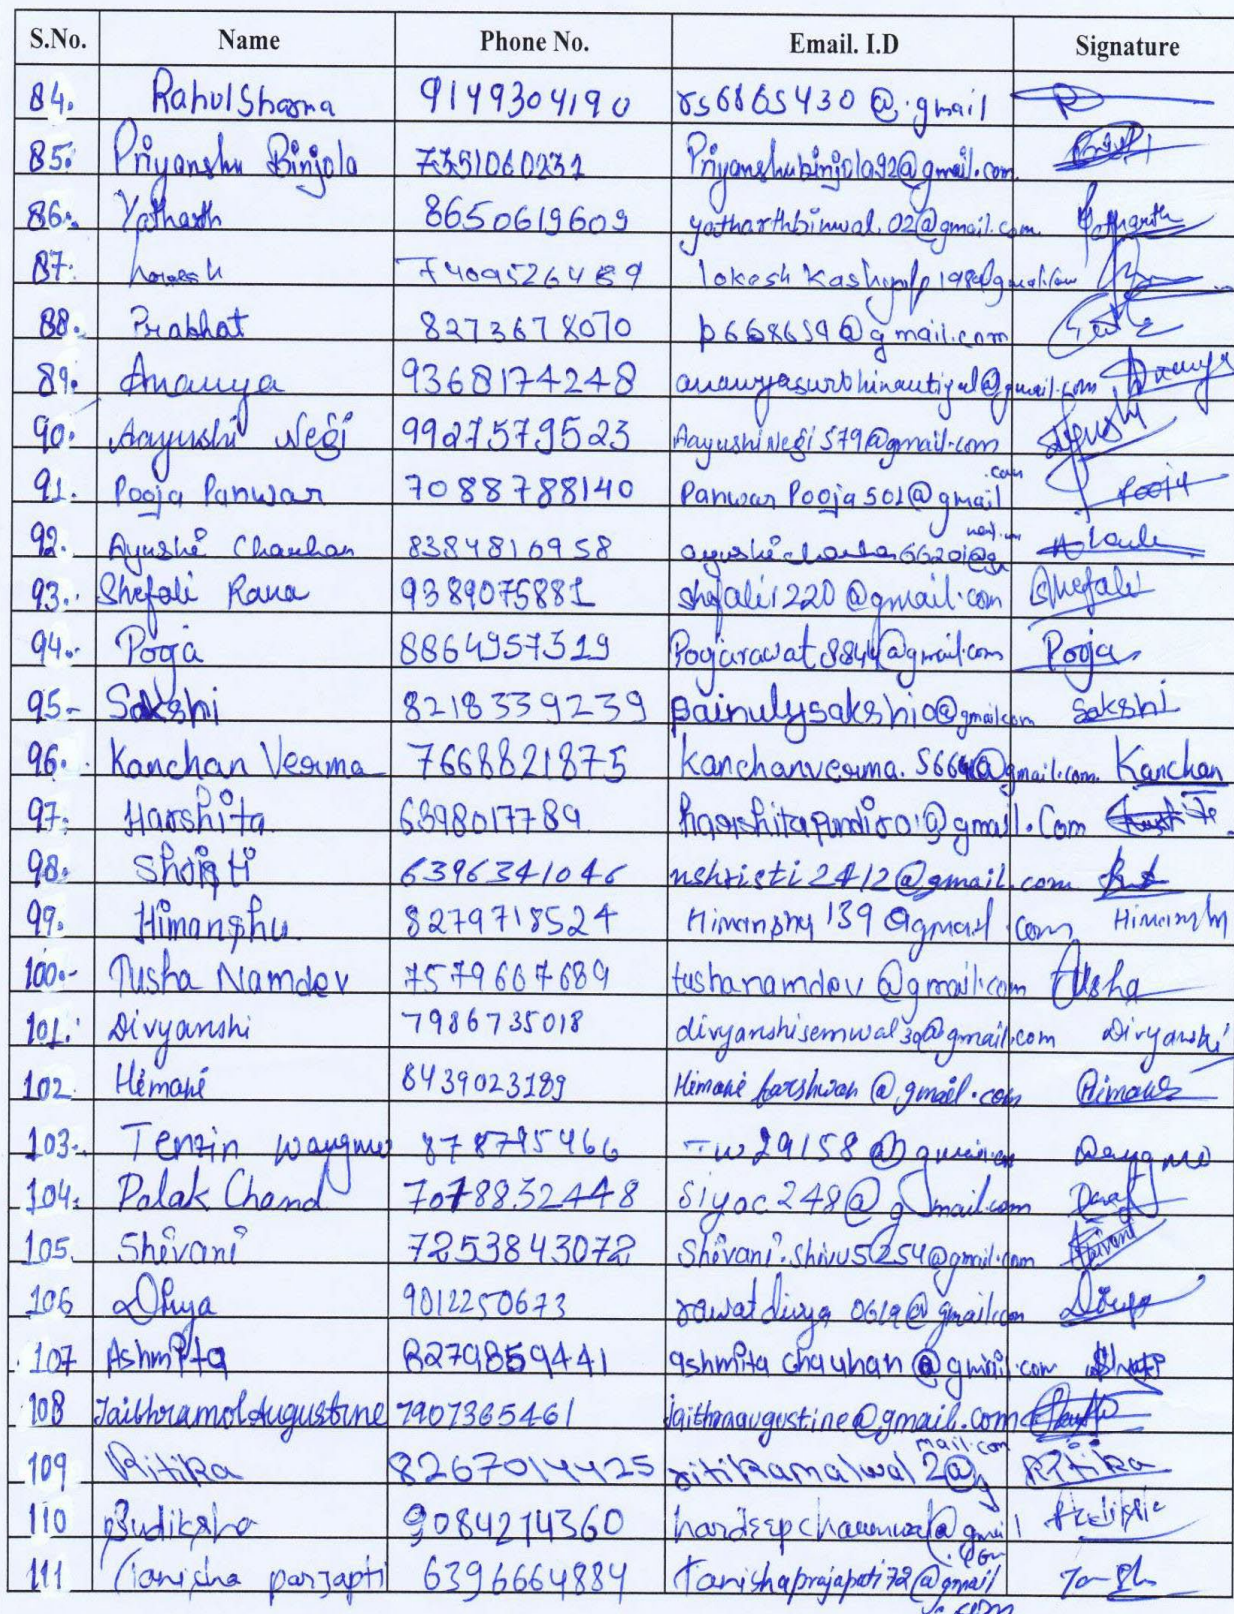 S.No. Name Phone No. Email. I.D Signature
84. Rahul Sharma 9149304190 rs6865430@.gmail
85. Priyanshu Binjola 7351060232 Priyanshubinjola92@gmail.com
86. Yatharth 8650619609 yatharthbinwal.02@gmail.com Yatharth
87. 7409526489
88. Prabhat 8273678070 p668659@gmail.com
89. Ananya 9368174248 Ananya
90. Aayushi Negi 9927579523 AayushiNegi579@gmail.com Aayushi
91. Pooja Panwar 7088788140 PanwarPooja501@gmail.com Pooja
92. Ayushi Chauhan 8384816958
93. Shefali Rana 9389075881 shefali1220@gmail.com Shefali
94. Pooja 8864957319 Poojarawat8844@gmail.com Pooja
95- Sakshi 8218339239 painulysakshi0@gmail.com Sakshi
96. Kanchan Verma 7668821875 kanchanverma.5664@gmail.com Kanchan
97. Harshita 6398017789
98. Shristi 6396341046 nshristi2412@gmail.com
99. Himanshu 8279718524 Himanshu139@gmail.com Himanshu
100.- Tusha Namdev 7579667689 tushanamdev@gmail.com Tusha
101. Divyanshi 7986735018 divyanshisemwal30@gmail.com Divyanshi
102 Himani 8439023189 Himani farshwan@gmail.com Himani
103. Tenzin Wangmo 878795466 Tw29158@gmail.com Wangmo
104. Palak Chand 7078832448 siyac248@gmail.com
105. Shivani 7253843072 Shivani.shivu5254@gmail.com Shivani
106 Divya 9012250673 rawatdivya0619@gmail.com Divya
107 Ashmita 8279859441 ashmita chauhan@gmail.com
108 Jaithramol Augustine 7907365461 jaithraaugustine@gmail.com
109 Ritika 8267014425 ritikamalwal2@gmail.com Ritika
110 9084214360
111 Tanisha parjapti 6396664884 Tanishaprajapati72@gmail.com